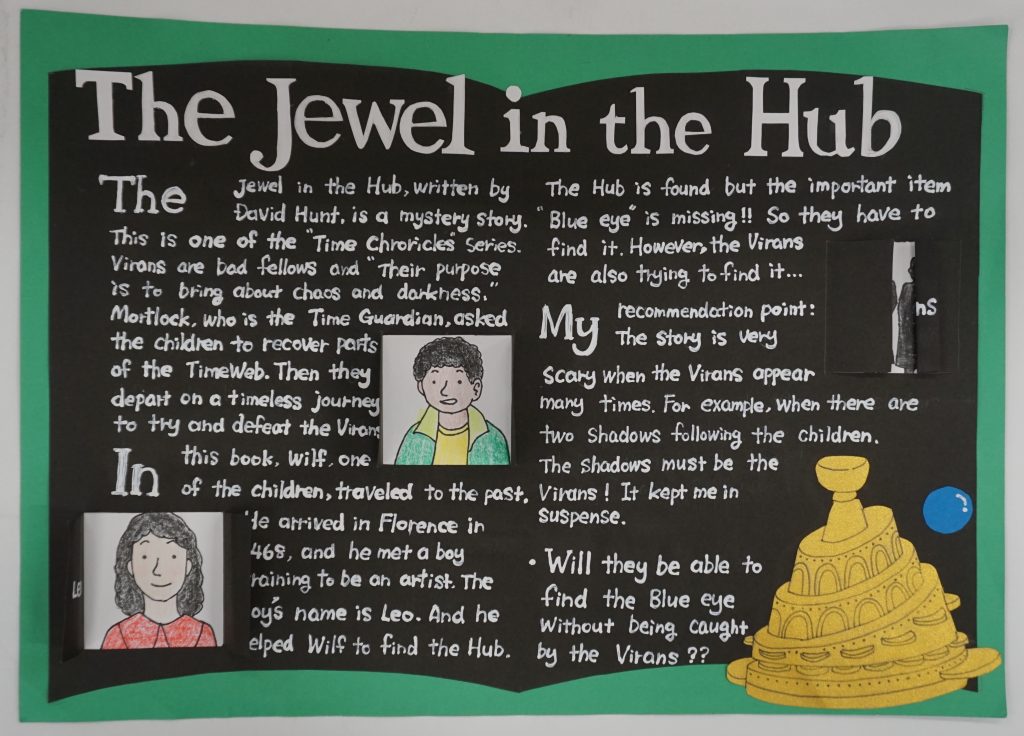 The Jewel in the Hub
The Jewel in the Hub, written by
David Hunt, is a mystery story.
This is one of the "Time Chronicles" series.
Virans are bad fellows and "Their purpose
is to bring about chaos and darkness."
Mortlock, who is the Time Guardian, asked
the children to recover parts
of the TimeWeb. Then they
depart on a timeless journey
to try and defeat the Virans
In this book, Wilf, one
of the children, traveled to the past.
He arrived in Florence in
468, and he met a boy
raining to be an artist. The
oy's name is Leo. And he
elped Wilf to find the Hub.
Le
The Hub is found but the important item
"Blue eye" is missing!! So they have to
find it. However, the Virans
are also trying to find it...
ns
My recommendation point:
The story is very
scary when the Virans appear
many times. For example, when there are
two shadows following the children.
The shadows must be the
Virans! It kept me in
suspense.
• Will they be able to
find the Blue eye
without being caught
by the Virans??